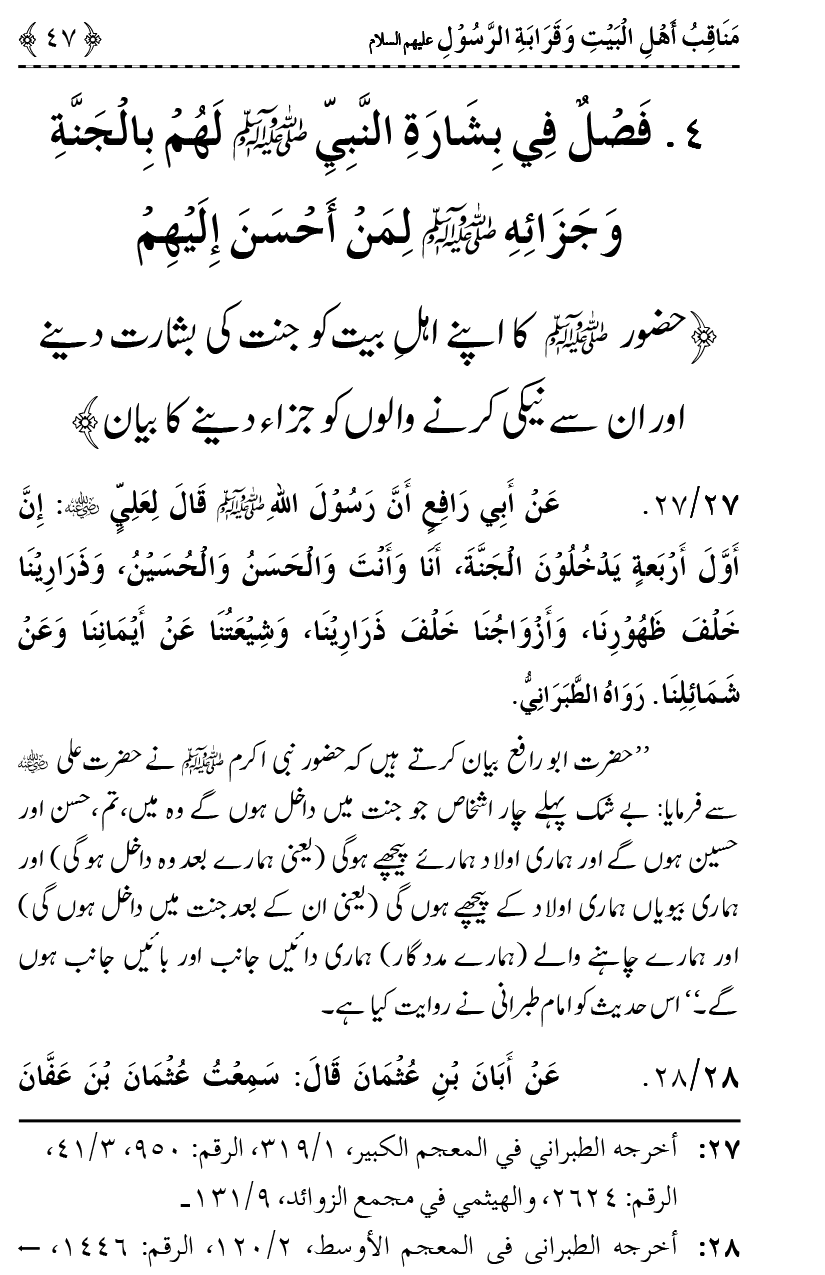 مَنَاقِبُ أَهْلِ الْبَيْتِ وَقَرَابَةِ الرَّسُوْلِ علیہم السلام ﴿٤٧﴾
٤. فَصْلٌ فِي بِشَارَةِ النَّبِيِّ ﷺ لَهُمْ بِالْجَنَّةِ
وَجَزَائِهِ ﷺ لِمَنْ أَحْسَنَ إِلَيْهِمْ
﴿حضور ﷺ کا اپنے اہلِ بیت کو جنت کی بشارت دینے
اور ان سے نیکی کرنے والوں کو جزاء دینے کا بیان﴾
٢٧/٢٧. عَنْ أَبِي رَافِعٍ أَنَّ رَسُوْلَ اللهِ ﷺ قَالَ لِعَلِيٍّ رضي الله عنه: إِنَّ
أَوَّلَ أَرْبَعةٍ يَدْخُلُوْنَ الْجَنَّةَ، أَنَا وَأَنْتَ وَالْحَسَنُ وَالْحُسَيْنُ، وَذَرَارِيْنَا
خَلْفَ ظَهُوْرِنَا، وَأَزْوَاجُنَا خَلْفَ ذَرَارِيْنَا، وَشِيْعَتُنَا عَنْ أَيْمَانِنَا وَعَنْ
شَمَائِلِنَا. رَوَاهُ الطَّبَرَانِيُّ.
’’حضرت ابو رافع بیان کرتے ہیں کہ حضور نبی اکرم ﷺ نے حضرت علی رضي الله عنه
سے فرمایا: بے شک پہلے چار اشخاص جو جنت میں داخل ہوں گے وہ میں، تم، حسن اور
حسین ہوں گے اور ہماری اولاد ہمارے پیچھے ہوگی (یعنی ہمارے بعد وہ داخل ہو گی) اور
ہماری بیویاں ہماری اولاد کے پیچھے ہوں گی (یعنی ان کے بعد جنت میں داخل ہوں گی)
اور ہمارے چاہنے والے (ہمارے مدد گار) ہماری دائیں جانب اور بائیں جانب ہوں
گے۔‘‘ اس حدیث کو امام طبرانی نے روایت کیا ہے۔
٢٨/٢٨. عَنْ أَبَانَ بْنِ عُثْمَانَ قَالَ: سَمِعْتُ عُثْمَانَ بْنَ عَفَّانَ
٢٧: أخرجه الطبراني في المعجم الكبير، ٣١٩/١، الرقم: ٩٥٠، ٤١/٣،
الرقم: ٢٦٢٤، والهيثمي في مجمع الزوائد، ١٣١/٩۔
٢٨: أخرجه الطبراني في المعجم الأوسط، ١٢٠/٢، الرقم: ١٤٤٦، ←